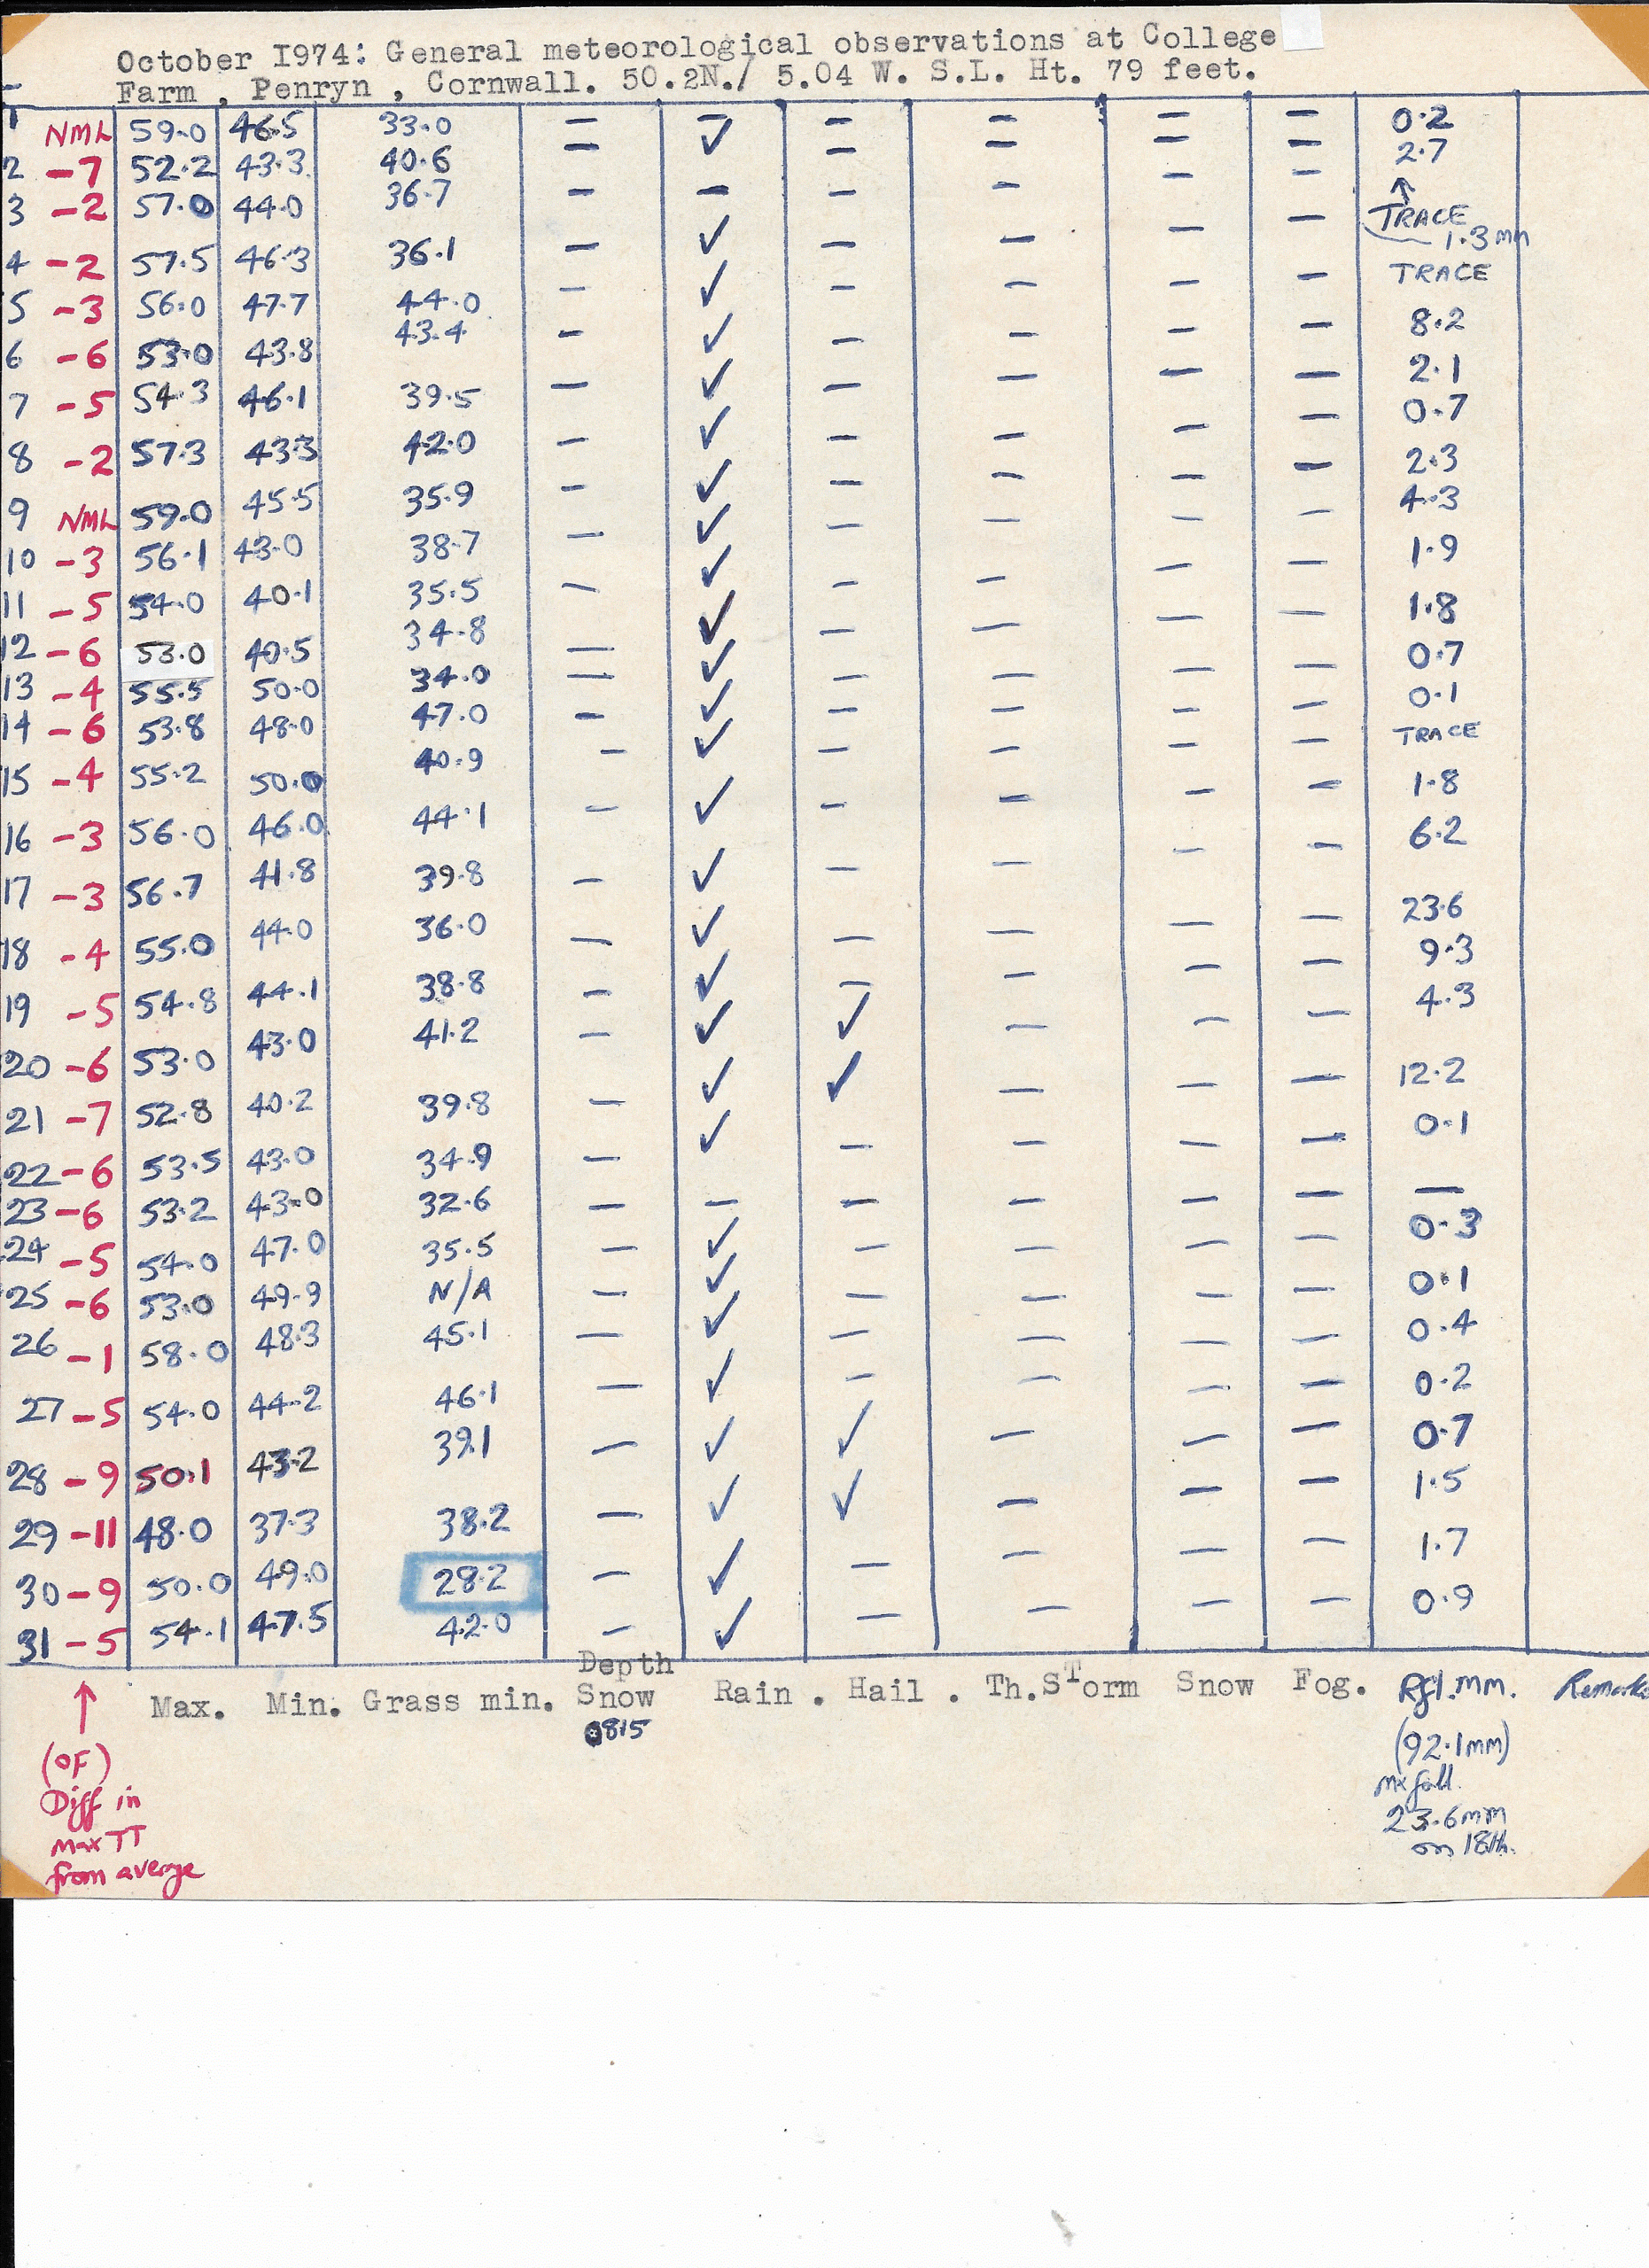 October I974: General meteorological observations at College
Farm , Penryn , Cornwall. 50.2N./ 5.04 W. S.L. Ht. 79 feet.
1 NML 59.0 46.5 33.0 — — — — — — 0.2
2 -7 52.2 43.3 40.6 — ✓ — — — — 2.7
3 -2 57.0 44.0 36.7 — — — — — — ↑ TRACE
4 -2 57.5 46.3 36.1 — ✓ — — — — 1.3 mm
5 -3 56.0 47.7 44.0 — ✓ — — — — TRACE
6 -6 53.0 43.8 43.4 — ✓ — — — — 8.2
7 -5 54.3 46.1 39.5 — ✓ — — — — 2.1
8 -2 57.3 43.3 42.0 — ✓ — — — — 0.7
9 NML 59.0 45.5 35.9 — ✓ — — — — 2.3
10 -3 56.1 43.0 38.7 — ✓ — — — — 4.3
11 -5 54.0 40.1 35.5 — ✓ — — — — 1.9
12 -6 53.0 40.5 34.8 — ✓ — — — — 1.8
13 -4 55.5 50.0 34.0 — ✓ — — — — 0.7
14 -6 53.8 48.0 47.0 — ✓ — — — — 0.1
15 -4 55.2 50.0 40.9 — ✓ — — — — TRACE
16 -3 56.0 46.0 44.1 — ✓ — — — — 1.8
17 -3 56.7 41.8 39.8 — ✓ — — — — 6.2
18 -4 55.0 44.0 36.0 — ✓ — — — — 23.6
19 -5 54.8 44.1 38.8 — ✓ — — — — 9.3
20 -6 53.0 43.0 41.2 — ✓ ✓ — — — 4.3
21 -7 52.8 40.2 39.8 — ✓ ✓ — — — 12.2
22 -6 53.5 43.0 34.9 — ✓ — — — — 0.1
23 -6 53.2 43.0 32.6 — — — — — — —
24 -5 54.0 47.0 35.5 — ✓ — — — — 0.3
25 -6 53.0 49.9 N/A — ✓ — — — — 0.1
26 -1 58.0 48.3 45.1 — ✓ — — — — 0.4
27 -5 54.0 44.2 46.1 — ✓ — — — — 0.2
28 -9 50.1 43.2 39.1 — ✓ ✓ — — — 0.7
29 -11 48.0 37.3 38.2 — ✓ ✓ — — — 1.5
30 -9 50.0 49.0 28.2 — ✓ — — — — 1.7
31 -5 54.1 47.5 42.0 — ✓ — — — — 0.9
↑ Max. Min. Grass min. Depth Snow 0815 Rain . Hail . Th.STorm Snow Fog. Rfl.mm. Remarks
(92.1mm)
mx fall.
23.6mm
on 18th.
(OF)
Diff in
max TT
from averge